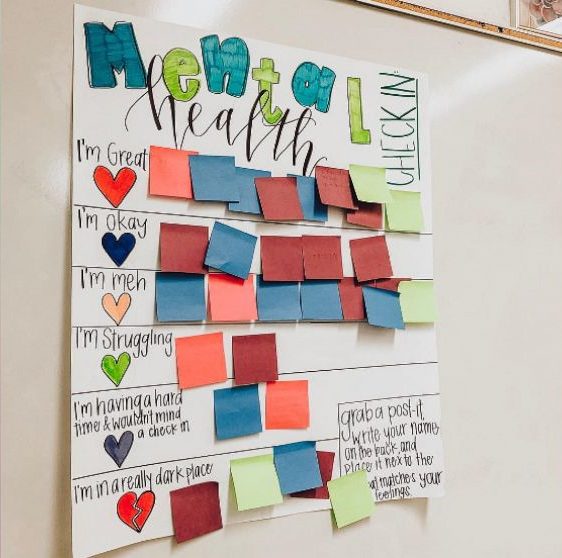 Mental
health
CHECK IN
I'm Great
I'm okay
I'm meh
I'm Struggling
I'm having a hard
time & wouldn't mind
a check in
I'm in a really dark place
grab a post-it,
write your name
on the back, and
place it next to the
matches your
feelings.